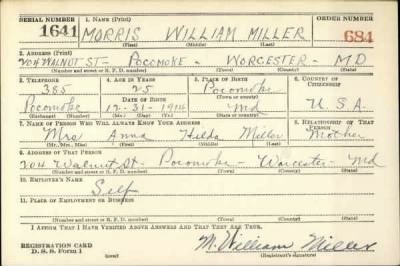 SERIAL NUMBER 1. NAME (Print) ORDER NUMBER
1641 MORRIS WILLIAM MILLER 684
(First) (Middle) (Last)
2. ADDRESS (Print)
204 WALNUT ST - POCOMOKE - WORCESTER - MD
(Number and street or R. F. D. number) (Town) (County) (State)
3. TELEPHONE 4. AGE IN YEARS 5. PLACE OF BIRTH 6. COUNTRY OF CITIZENSHIP
365 25 Pocomoke
DATE OF BIRTH (Town or county)
Pocomoke 12-31-1914 Md U.S.A.
(Exchange) (Number) (Mo.) (Day) (Yr.) (State or country)
7. NAME OF PERSON WHO WILL ALWAYS KNOW YOUR ADDRESS 8. RELATIONSHIP OF THAT PERSON
Mrs Anna Hilda Miller Mother
(Mr., Mrs., Miss) (First) (Middle) (Last)
9. ADDRESS OF THAT PERSON
204 Walnut St - Pocomoke - Worcester - Md
(Number and street or R. F. D. number) (Town) (County) (State)
10. EMPLOYER'S NAME
Self
11. PLACE OF EMPLOYMENT OR BUSINESS
(Number and street or R. F. D. number) (Town) (County) (State)
I AFFIRM THAT I HAVE VERIFIED ABOVE ANSWERS AND THAT THEY ARE TRUE.
REGISTRATION CARD
D. S. S. Form 1
M. William Miller
(Registrant's signature)